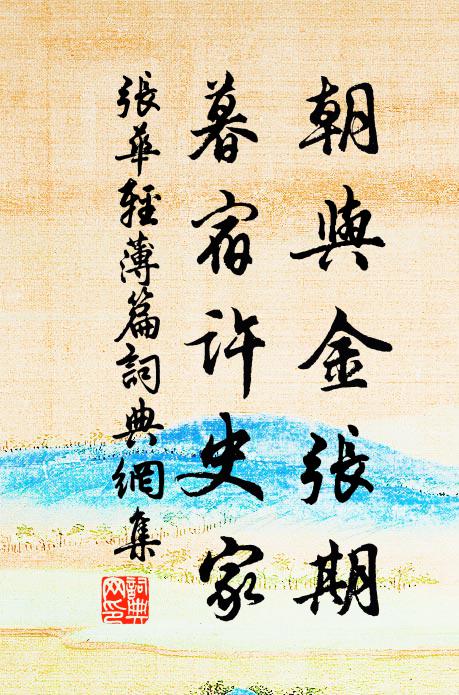 朝與金張期
暮宿許史家
張華輕薄篇詞典網集
詞典